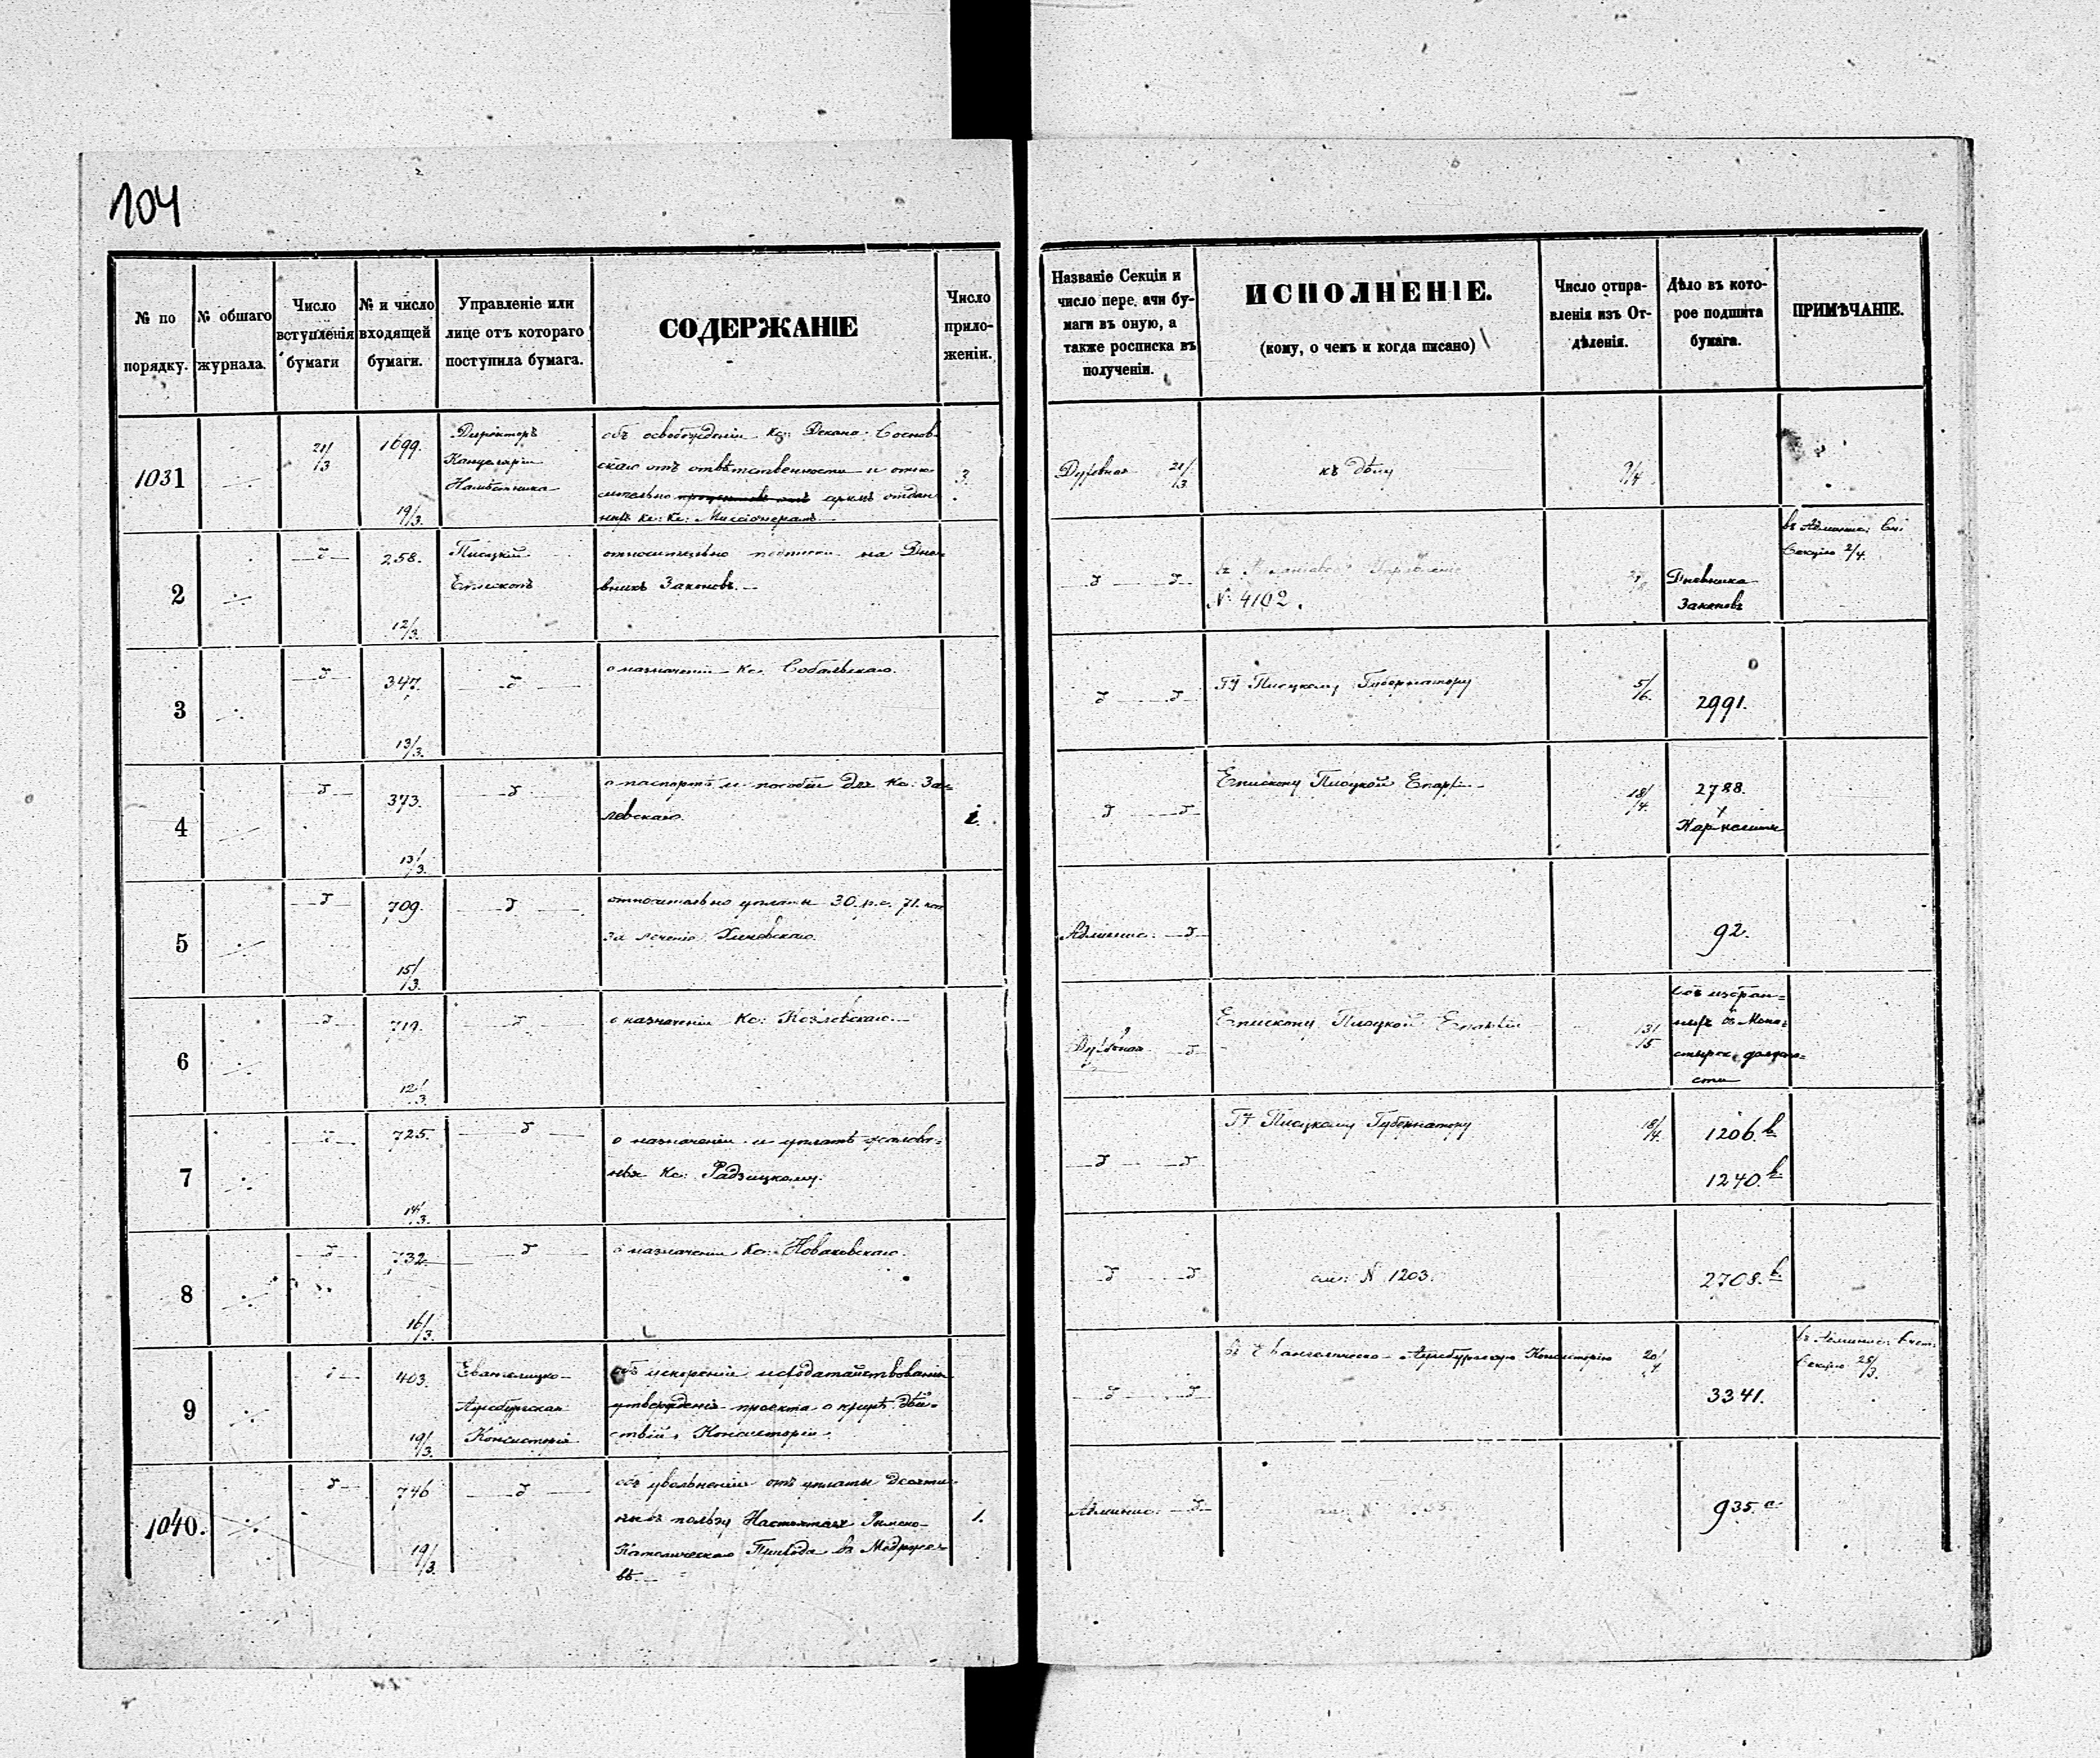 104
№ по порядку.
№ обшаго журнала.
Число вступленія бумаги
№ и число входящей бумаги.
Управленіе или лице отъ котораго поступила бумага.
СОДЕРЖАНІЕ
Число прило-женіи.
Названіе Секціи и число пере. ачи бу-маги въ оную, а также росписка въ полученіи.
ИСПОЛНЕНІЕ.
(кому, о чемъ и когда писано)
Число отпра-вленія изъ От-дѣленія.
Дѣло въ кото-рое подшита бумага.
ПРИМѢЧАНІЕ.
1031
21/3
1699.
19/3.
Директоръ
Канцеляріи
Намѣстника
объ освобожденіи Кс: Декана Соснов-
скаго отъ отвѣтственности и отно-
сительно аркмъ отдан
ныхъ кс: кс: Миссіонерамъ
3.
Духовная 21/3
къ дѣлу
9/4
2
258.
12/3.
Плоцкій
Епископъ
относительно подписки на Дне-
вникъ Законовъ.
Управленіе
№ 4102.
Дневника
Законовъ
въ Админис:
Секцію 2/4
3
347.
13/3.
о назначеніи Кс. Собольскаго.
Гу Плоцкому Губернатору
5/6.
2991.
4
373.
13/3.
о паспортѣ и пособіи для Кс. За-
левскаго.
1.
Епископу Плоцкой Епархіи
18/4.
2788.
5
709.
15/3.
относительно уплаты 30 р.с. 71. коп
за леченіе
Админис:
92.
6
719.
12/3.
о назначеніи Кс: Козловскаго.
Духовная
Епископу Плоцкой Епархіи
13/5
объ избран-
ныхъ въ Мона-
стырск: должно-
сти
7
725.
14/3.
о назначеніи и уплатѣ жалова-
нья Кс: Радзицкому.
Гу Плоцкому Губернатору
18/4.
1206.b
1240.b
8
732.
16/3.
о назначеніи Кс: Новаковскаго.
см: N 1203.
2708.b
9
403.
19/3.
Евангелицко-
Аугсбургская
Консисторія
объ ускореніи исходатайствованія
утвержденія проекта о кругѣ дѣй-
ствій Консисторіи.
въ Евангелическо-Аугсбургскую Консисторію
20/4
3341.
въ Админис:
Секцію 25/3.
1040.
746
19/3.
объ увольненіи отъ уплаты Десяти-
ны въ пользу Настоятеля Римско-
Католическаго Прихода въ
вѣ.
1.
Админис:
935.a